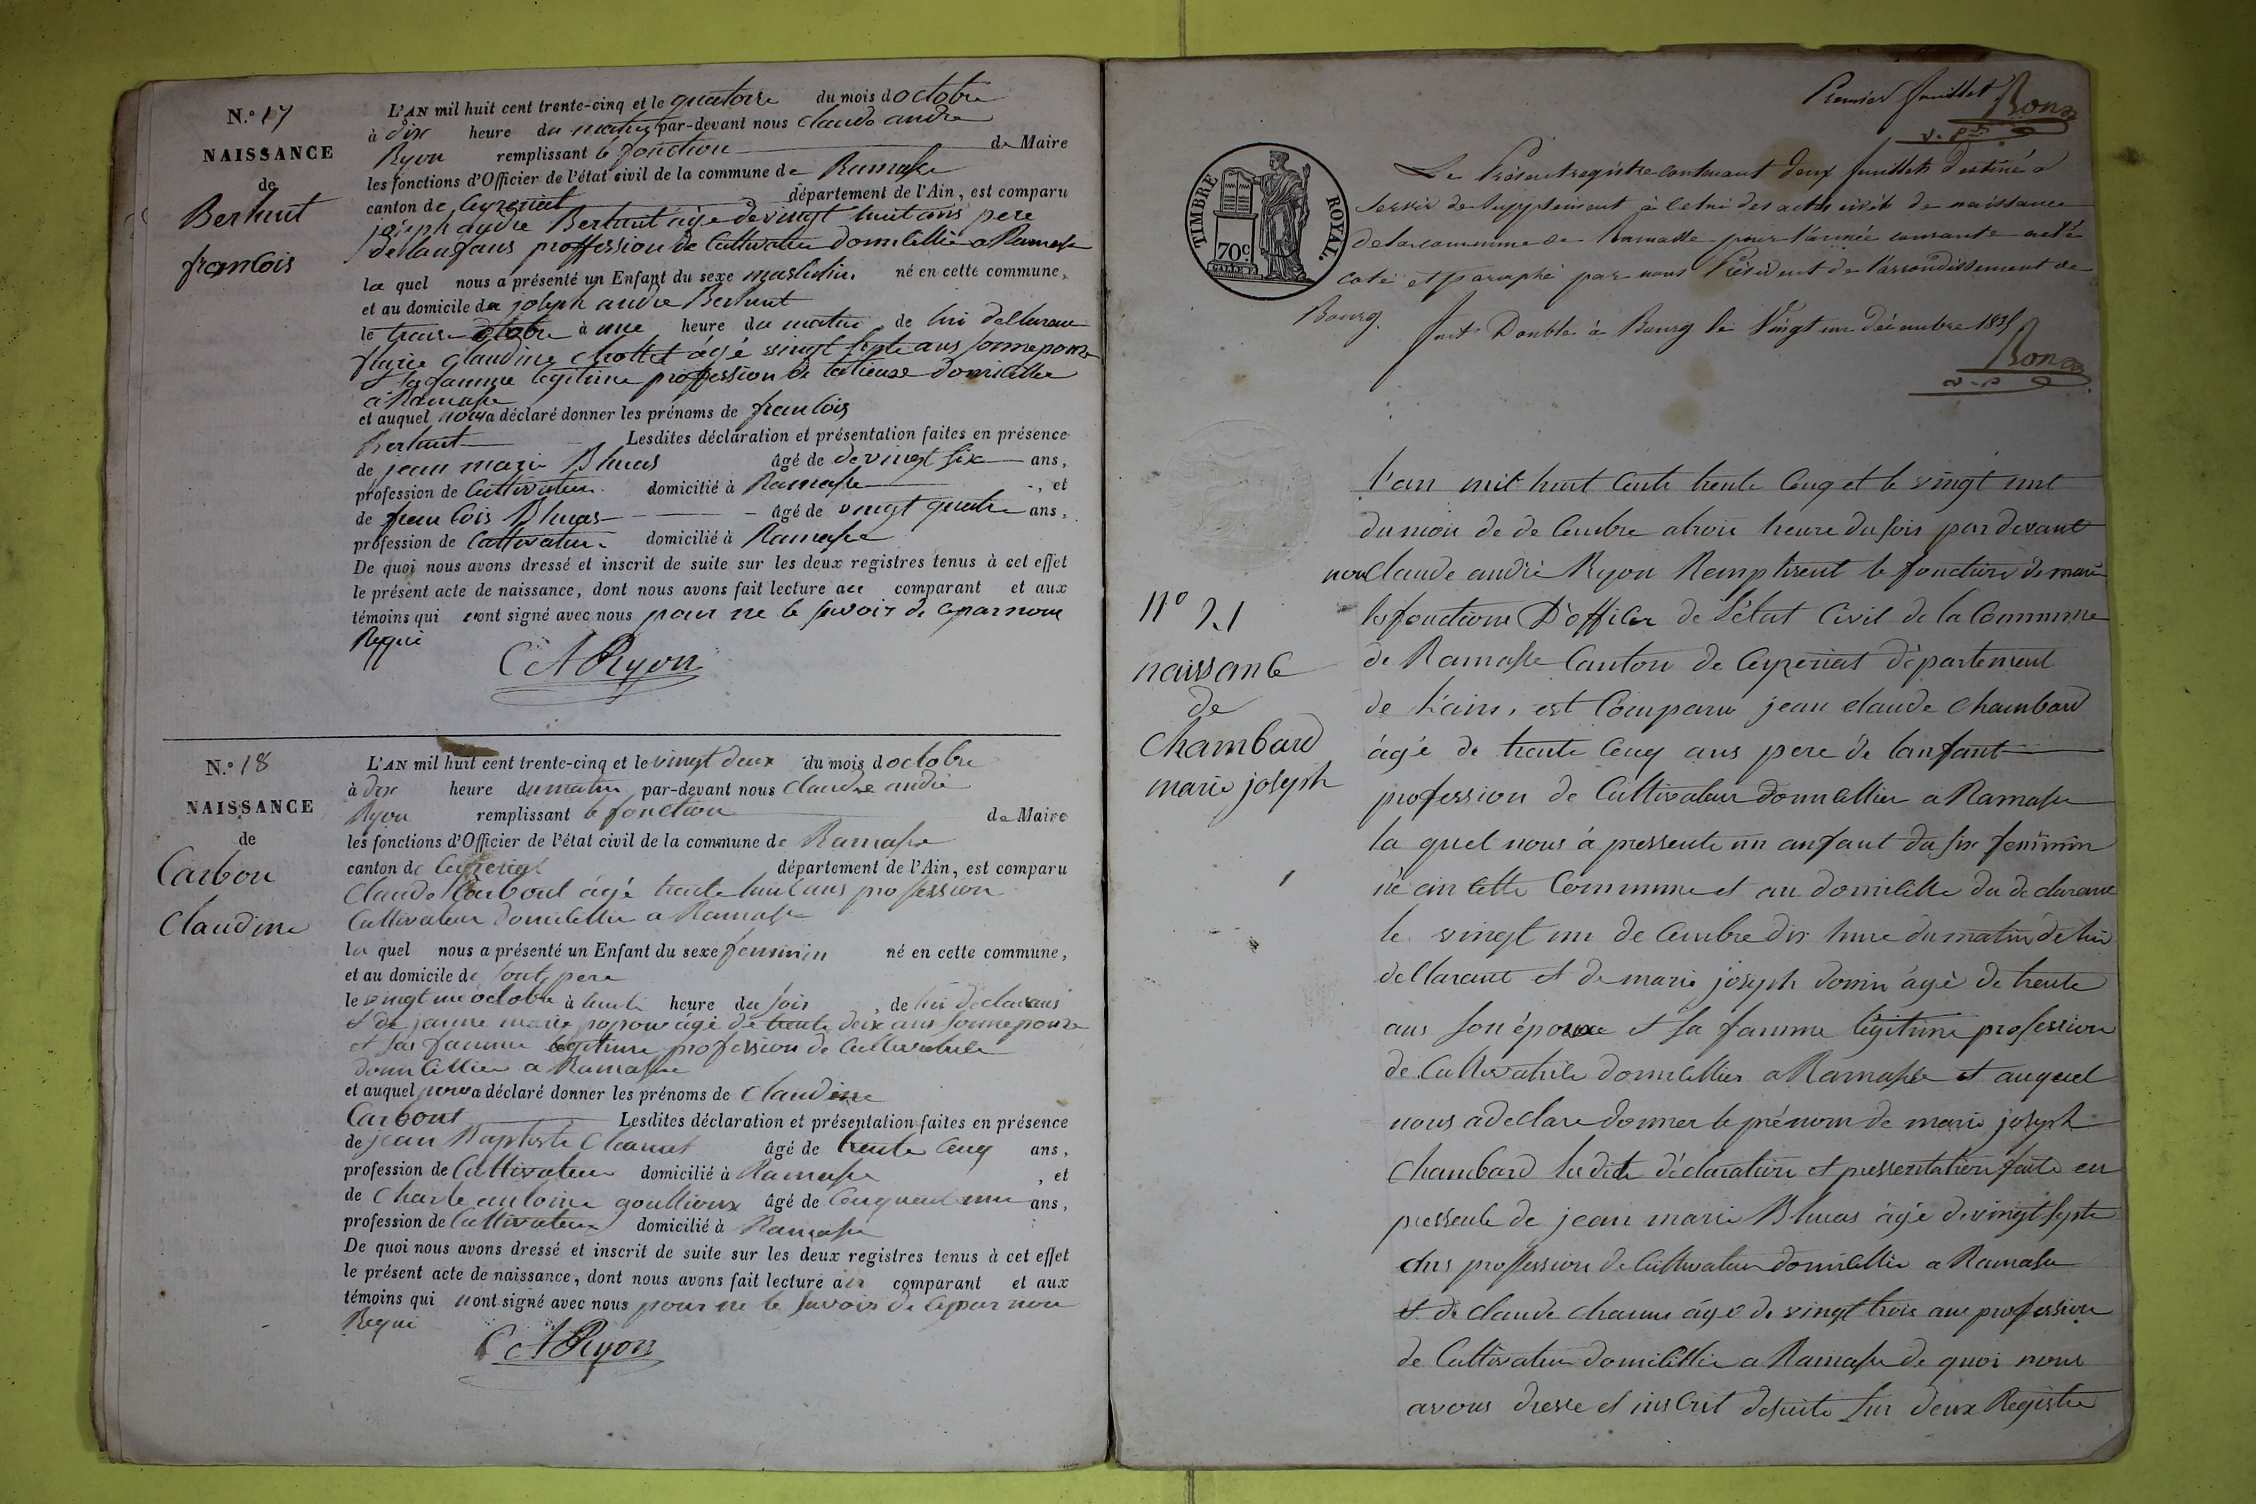 N.º 17
NAISSANCE
de
Berliut
francois
L'AN mil huit cent trente-cinq et le quatorze du mois d octobre
à dix heure du matin par-devant nous claude andre
Ryon remplissant le fonction de Maire
les fonctions d'Officier de l'état civil de la commune de Ramasse
canton de Ceyzeriat département de l'Ain, est comparu
joseph andre Berliut âgé de vingt huit ans pere
de lanfans proffession de Cultivateu domicillié a Ramasse
la quel nous a présenté un Enfant du sexe masculin né en cette commune,
et au domicile de joseph andre Berliut
le traize octobre à une heure du matin de lui dellarant
claudine âgé vingt septe ans sonne pouse
et sa famme legitime proffession de domicillie
a Ramasse
et auquel nous a déclaré donner les prénoms de francois
Berliut Lesdites déclaration et présentation faites en présence
de jean marie Bluas âgé de de vingt six ans,
profession de Cultivateu domicilié à Ramasse , et
de francois Bluas âgé de vingt quatre ans,
profession de Cultivateu domicilié à Ramasse
De quoi nous avons dressé et inscrit de suite sur les deux registres tenus à cet effet
le présent acte de naissance, dont nous avons fait lecture au comparant et aux
témoins qui nont signé avec nous pour ne le savoir de ce par nous
Requi
CA Ryon
N.º 18
NAISSANCE
de
Carbon
Claudine
L'AN mil huit cent trente-cinq et le vingt deux du mois d octobre
à dix heure du matin par-devant nous claude andre
Ryon remplissant le fonction de Maire
les fonctions d'Officier de l'état civil de la commune de Ramasse
canton de Ceyzeriat département de l'Ain, est comparu
claude Carbout âgé trente huit ans profession
Cultivateur domicillie a Ramasse
la quel nous a présenté un Enfant du sexe feminin né en cette commune,
et au domicile de sont pere
le vingt un octobre à huit heure du soir , de lui declarant
et de janne marie âgé de trente deix ans sonne pouse
et sas famme legitime profession de Cultivatrile
domicillie a Ramasse
et auquel nous a déclaré donner les prénoms de Claudine
Carbout Lesdites déclaration et présentation faites en présence
de jean Baptiste Chanut âgé de trente Cinq ans,
profession de Cultivateu domicilié à Ramasse , et
de Charle antoine goullioux âgé de Cinquent un ans,
profession de Cultivateu domicilié à Ramasse
De quoi nous avons dressé et inscrit de suite sur les deux registres tenus à cet effet
le présent acte de naissance, dont nous avons fait lecture au comparant et aux
témoins qui nont signé avec nous pour ne le savoir de ce par nou
Requi
CA Ryon
Premier feuillet Bon
v. p.
TIMBRE ROYAL.
70c
Le Présent registre contenant deux feuillets destiné a
servir de supplement à celui des actes civils de naissance
de la commune de Ramasse pour l'année courante a été
coté et paraphé par nous Président de l'arrondissement de
Bourg. fait Double à Bourg le Vingt un décembre 1835
Bon
v. p.
n.º 21
naissance
de
Chambard
marie joseph
l'an mil huit Cente trente Cinq et le vingt unt
du mois de de Cembre a trois heure du soir par devant
nou Claude andré Ryon Remplisent le fonction de maire
les fonctions D'officier de l'état Civil de la Commune
de Ramasse Canton de Ceyzeriat département
de l'ain, est Comparu jean claude Chambard
âgé de trente Cinq ans pere de lanfant
profession de Cultivateur domicillier a Ramasse
la quel nous á pressente un anfant du sex feminin
né ain cette Commune et au domicille du declarant
le vingt un de Cembre dix hure du matin de lui
dellarant et de marie joseph domin âgé de trente
ans son épouxe et sa famme légitime profession
de Cultivatrile domicillier a Ramasse et auquel
nous a dellare donner le prénom de marie joseph
Chambard ludite déclaration et pressentation faite en
pressente de jean marie Bluas âgé de vingt septe
ans proffession de Cultivateu domicillie a Ramasse
et de claude chanu âgé de vingt trois ans profession
de Cultivateu domicillie a Ramasse de quoi nous
avons dresse et inscrit de suite sur deux Registre